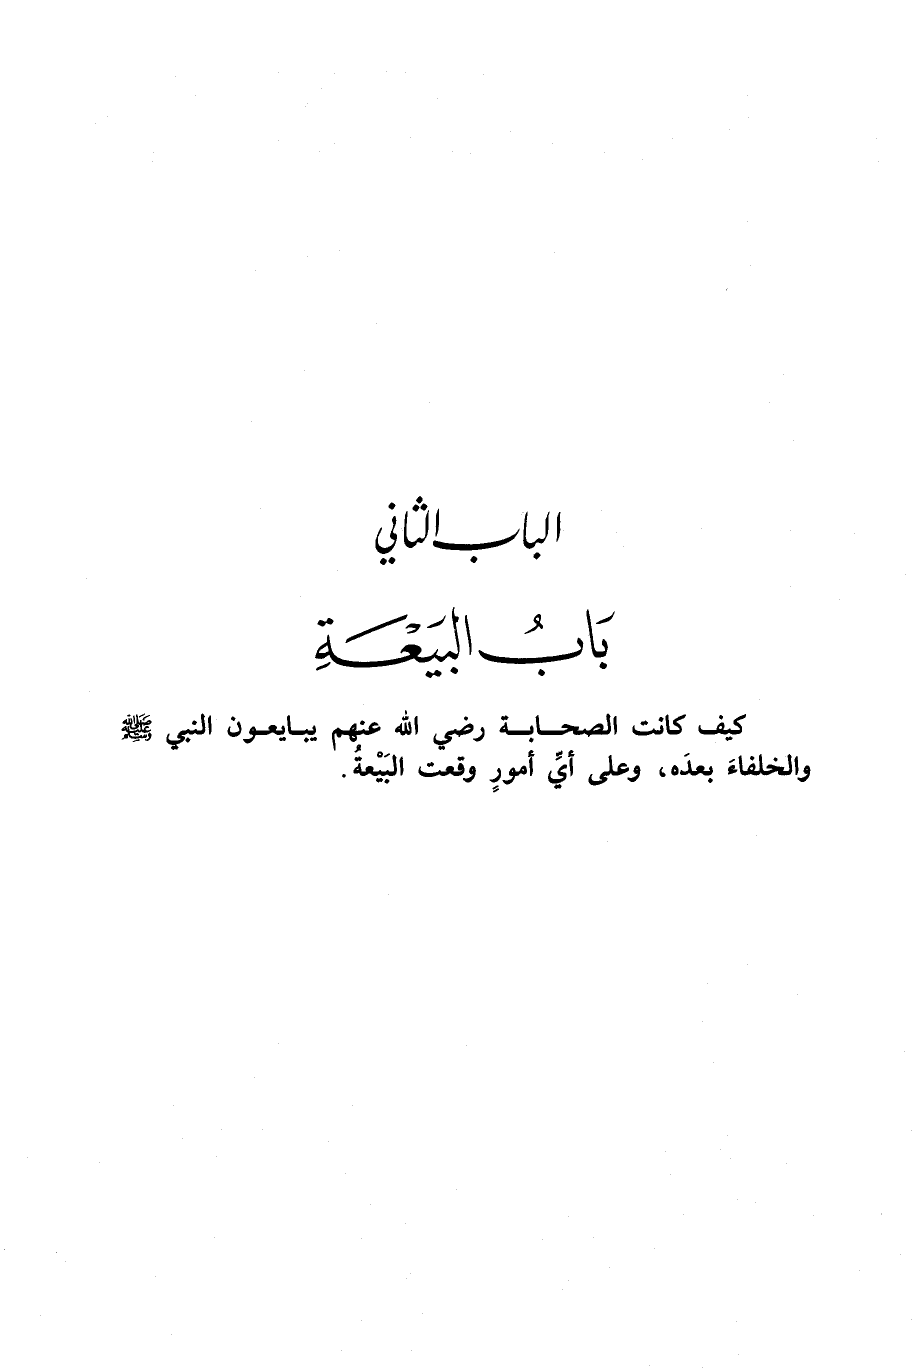 الباب الثاني
بَابُ البَيْعَةِ
كيف كانت الصحابة رضي الله عنهم يبايعون النبي ﷺ
والخلفاءَ بعدَه، وعلى أيِّ أمورٍ وقعت البَيْعةُ.